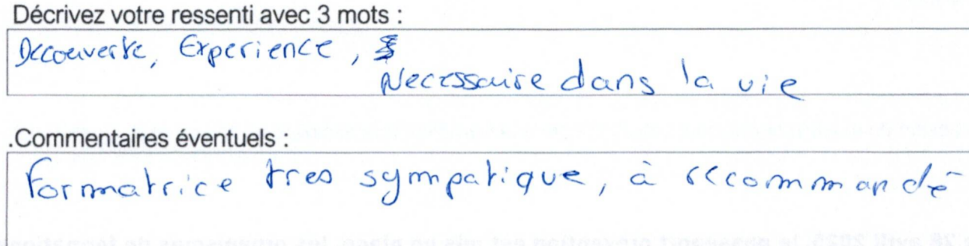 Décrivez votre ressenti avec 3 mots :
Découverte, Experience,
Necessaire dans la vie
.Commentaires éventuels :
Formatrice tres sympatique, à recommandé